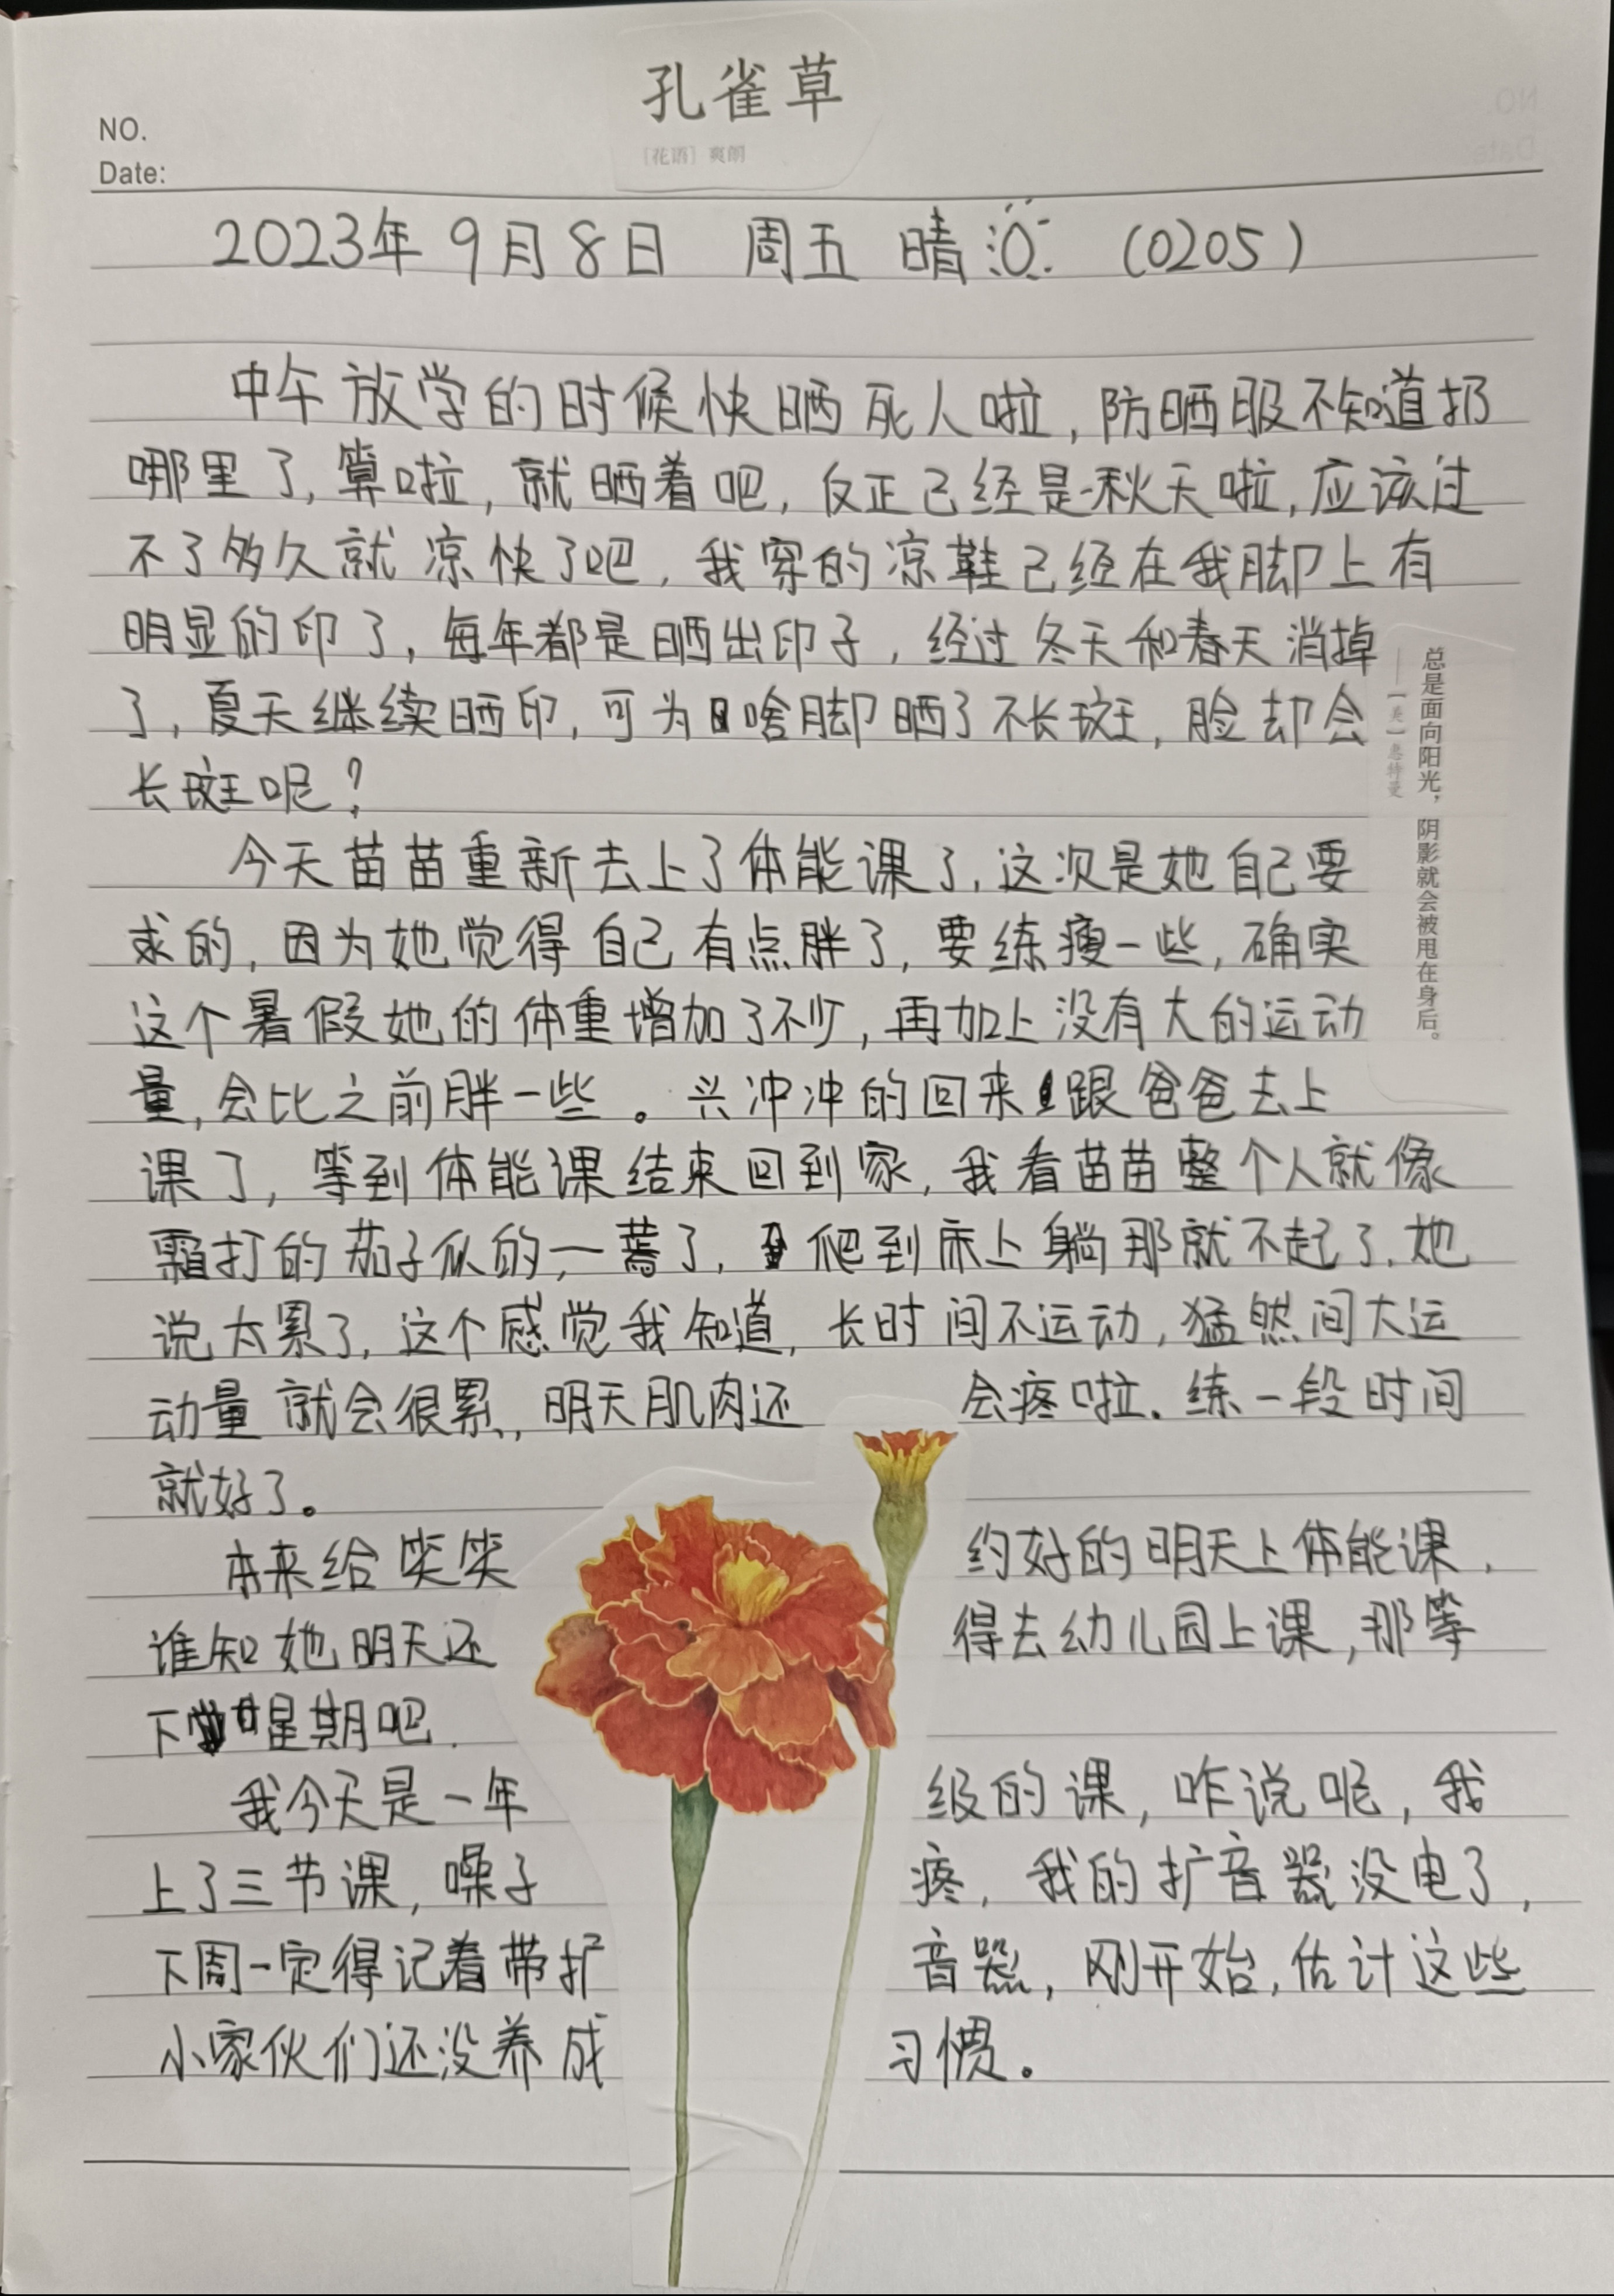 孔雀草
[花语] 爽朗
NO.
Date:
2023年9月8日 周五 晴 (0205)
中午放学的时候快晒死人啦,防晒服不知道扔
哪里了,算啦,就晒着吧,反正已经是秋天啦,应该过
不了多久就凉快了吧,我穿的凉鞋已经在我脚上有
明显的印了,每年都是晒出印子,经过冬天和春天消掉
了,夏天继续晒印,可为啥脚晒了不长斑,脸却会
长斑呢?
总是面向阳光,阴影就会被甩在身后。
——[美]惠特曼
今天苗苗重新去上了体能课了,这次是她自己要
求的,因为她觉得自己有点胖了,要练瘦一些,确实
这个暑假她的体重增加了不少,再加上没有大的运动
量,会比之前胖一些。兴冲冲的回来跟爸爸去上
课了,等到体能课结束回到家,我看苗苗整个人就像
霜打的茄子似的,一蔫了,爬到床上躺那就不起了,她
说太累了,这个感觉我知道,长时间不运动,猛然间大运
动量就会很累,明天肌肉还会疼啦.练一段时间
就好了。
本来给笑笑约好的明天上体能课,
谁知她明天还得去幼儿园上课,那等
下星期吧.
我今天是一年级的课,咋说呢,我
上了三节课,嗓子疼,我的扩音器没电了,
下周一定得记着带扩音器,刚开始,估计这些
小家伙们还没养成习惯。